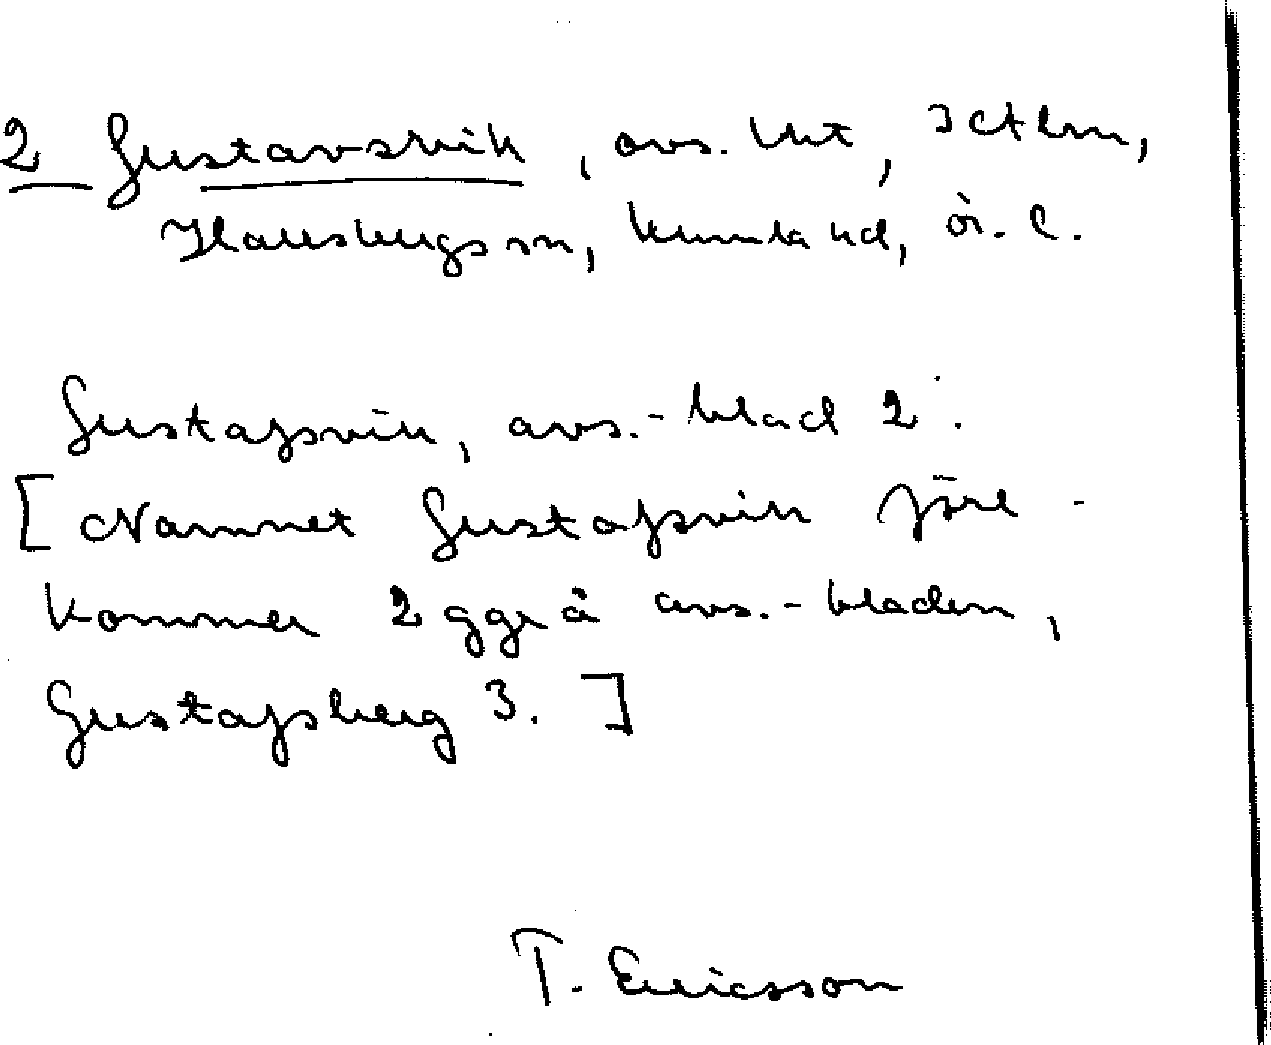 2 Gustavsvik, avs. lht,
Hallsbergs sn, Kumla hd, Ör. l.
Gustafsvik, avs.-blad 2.
[Namnet Gustafsvik före-
kommer 2 ggr å avs.-bladen,
Gustafsberg 3.]
T. Ericsson